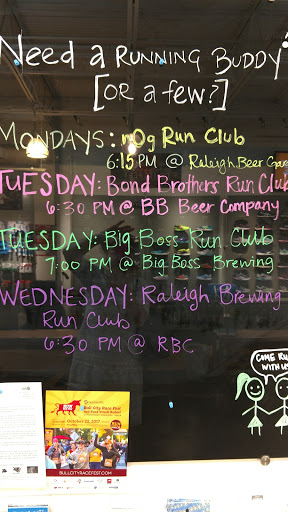 Need a RUNNING BUDDY?
[OR a few?]
MONDAYS: nOg Run Club
6:15 PM @ Raleigh Beer Gar
TUESDAY: Bond Brothers Run Club
6:30 PM @ BB Beer Company
TUESDAY: Big Boss Run Club
7:00 PM @ Big Boss Brewing
WEDNESDAY: Raleigh Brewing
Run Club
6:30 PM @ RBC
COME RUN
WITH US
Bull City Race Fest
October 15, 2017
BULLCITYRACEFEST.COM